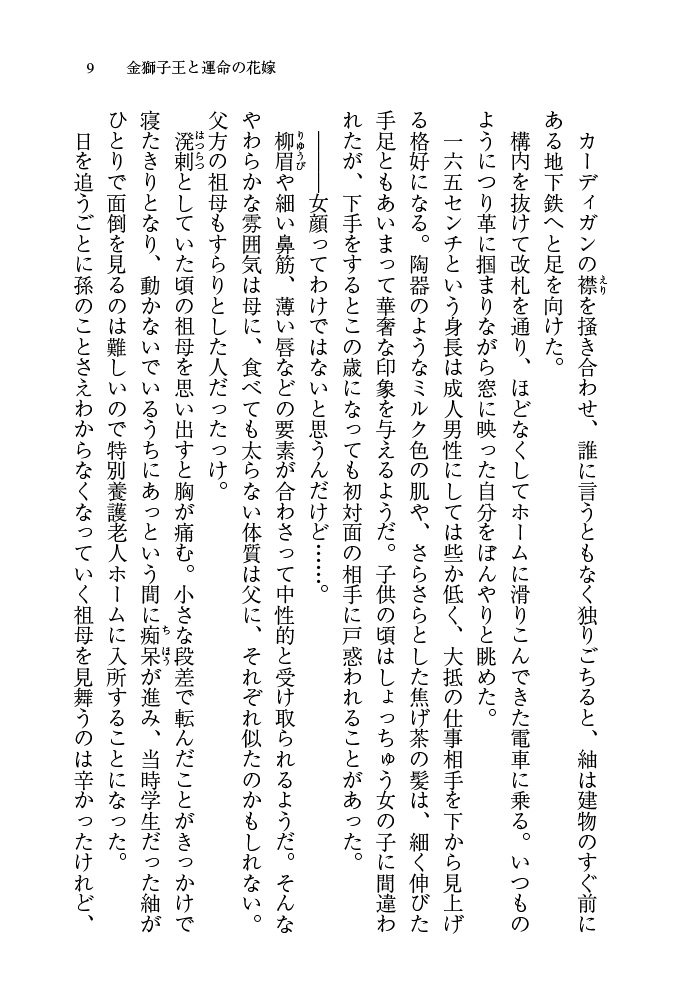 9　金獅子王と運命の花嫁
カーディガンの襟を掻き合わせ、誰に言うともなく独りごちると、紬は建物のすぐ前に
ある地下鉄へと足を向けた。
構内を抜けて改札を通り、ほどなくしてホームに滑りこんできた電車に乗る。いつもの
ようにつり革に掴まりながら窓に映った自分をぼんやりと眺めた。
一六五センチという身長は成人男性にしては些か低く、大抵の仕事相手を下から見上げ
る格好になる。陶器のようなミルク色の肌や、さらさらとした焦げ茶の髪は、細く伸びた
手足ともあいまって華奢な印象を与えるようだ。子供の頃はしょっちゅう女の子に間違わ
れたが、下手をするとこの歳になっても初対面の相手に戸惑われることがあった。
――女顔ってわけではないと思うんだけど……。
柳眉や細い鼻筋、薄い唇などの要素が合わさって中性的と受け取られるようだ。そんな
やわらかな雰囲気は母に、食べても太らない体質は父に、それぞれ似たのかもしれない。
父方の祖母もすらりとした人だったっけ。
溌剌としていた頃の祖母を思い出すと胸が痛む。小さな段差で転んだことがきっかけで
寝たきりとなり、動かないでいるうちにあっという間に痴呆が進み、当時学生だった紬が
ひとりで面倒を見るのは難しいので特別養護老人ホームに入所することになった。
日を追うごとに孫のことさえわからなくなっていく祖母を見舞うのは辛かったけれど、
えり
りゅうび
はつらつ
ちほう